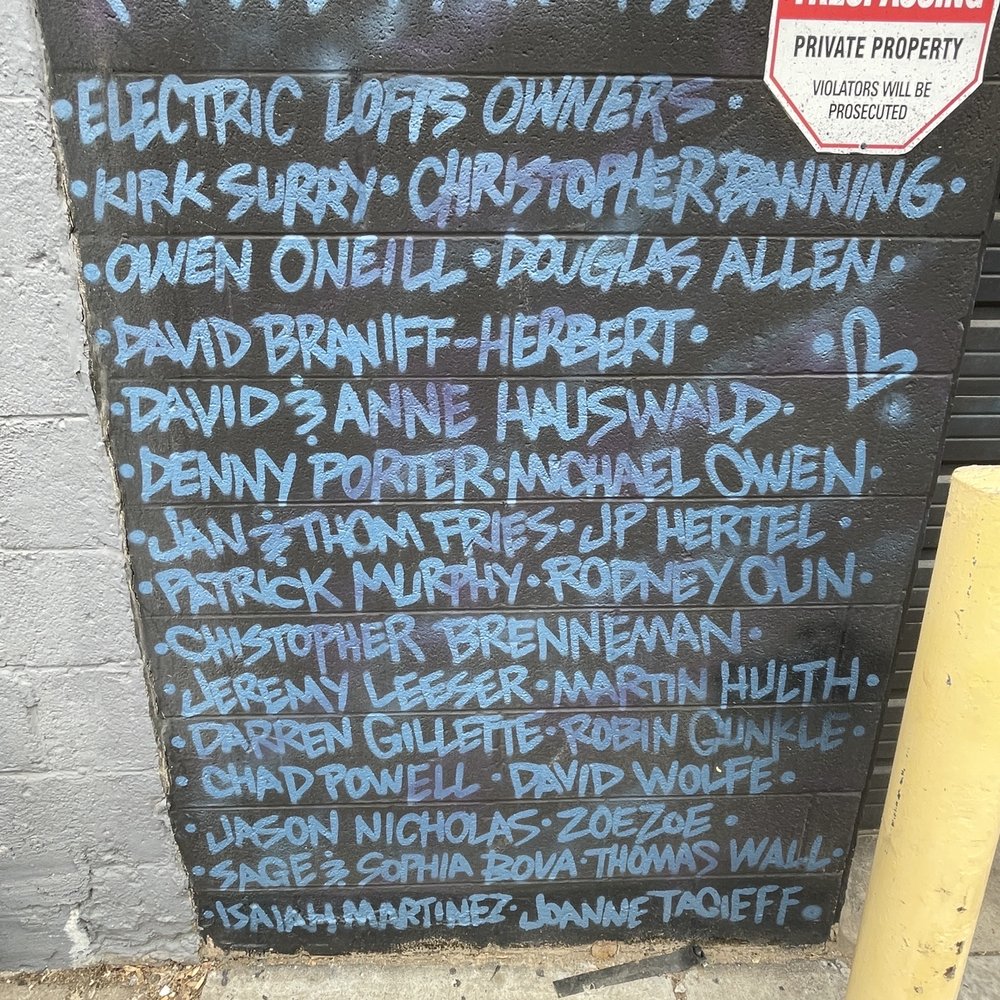 TRESPASSING
PRIVATE PROPERTY
VIOLATORS WILL BE
PROSECUTED
•ELECTRIC LOFTS OWNERS•
•KIRK SURRY•CHRISTOPHER BANNING•
•OWEN ONEILL•DOUGLAS ALLEN•
•DAVID BRANIFF-HERBERT•
•DAVID & ANNE HAUSWALD•
•DENNY PORTER•MICHAEL OWEN•
•JAN & THOM FRIES•JP HERTEL•
•PATRICK MURPHY•RODNEY OLIN•
•CHISTOPHER BRENNEMAN•
•JEREMY LEESER•MARTIN HULTH•
•DARREN GILLETTE•ROBIN GUNKLE•
•CHAD POWELL•DAVID WOLFE•
•JASON NICHOLAS•ZOEZOE•
•SAGE & SOPHIA BOVA•THOMAS WALL•
•ISAIAH MARTINEZ•JOANNE TACIEFF•